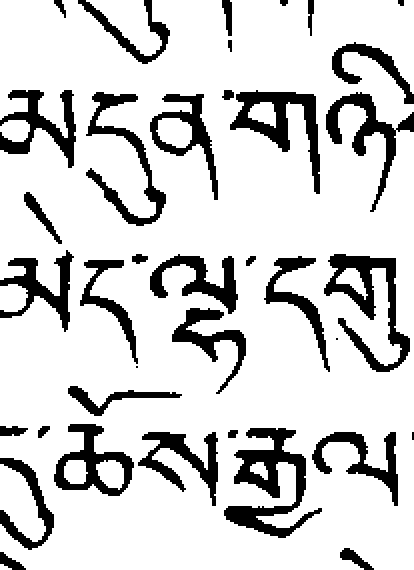 མདུན་གཉི
མེད་ལྷ་དགུ
ཆོས་རྒྱལ